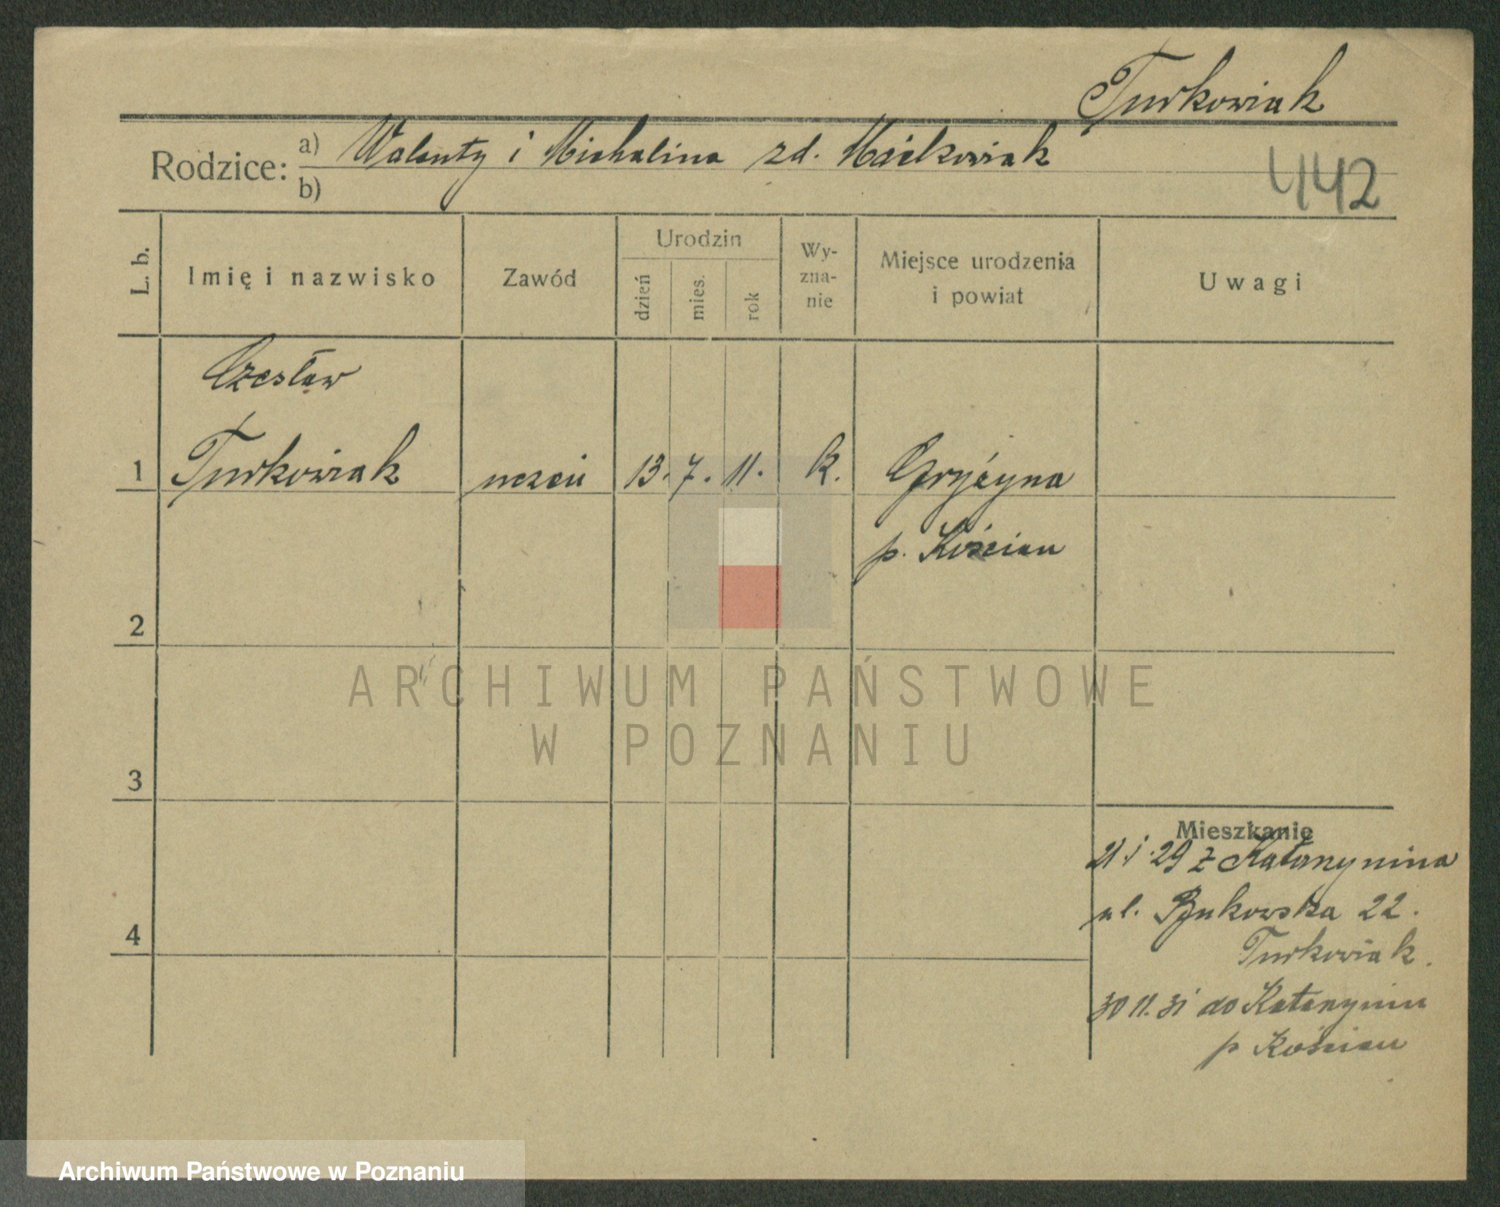 Turkowiak
Rodzice: a) Walenty i Michalina zd. Maćkowiak
b)
442
L. b.
Imię i nazwisko
Zawód
Urodzin
dzień
mies.
rok
Wy-
zna-
nie
Miejsce urodzenia
i powiat
Uwagi
Czesław
1 Turkowiak uczeń 13. 7. 11. k. Gryżyna
p. Kościan
2
3
4
Mieszkanie
21.1.29 z Katarzynina
ul. Bukowska 22.
Turkowiak.
30 11. 31 do Katarzynin
p Kościan
ARCHIWUM PAŃSTWOWE
W POZNANIU
Archiwum Państwowe w Poznaniu